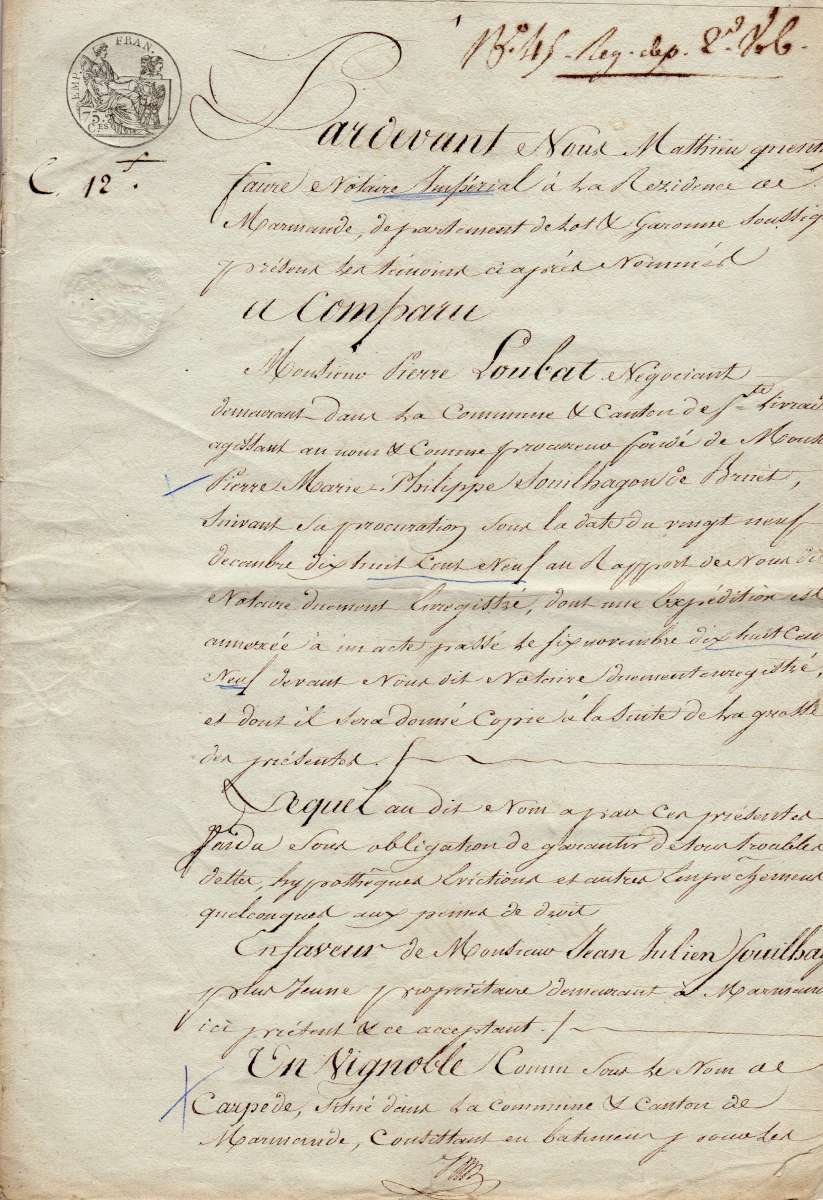 EMP. FRAN.
75
CES
Reg. dep. 2nd
C 12 f.
Pardevant Nous Mathieu quentin
faure Notaire Impérial à La Rezidence de
Marmande, département de Lot & Garonne soussig
présens Les témoins ci après Nommés
a Comparu
Monsieur Pierre Loubat Négociant
demeurant dans La Commune & Canton de Ste Livrade
agissant au nom & Comme procureur fondé de Mons
Pierre Marie Philippe Souilhagon de Bruet,
Suivant sa procuration sous la date du vingt neuf
decembre dix huit Cent Neuf au Rapport de Nous dit
Notaire duement Enregistré, dont une Expédition est
annexée à un acte passé Le six novembre dix huit Cen
Neuf devant Nous dit Notaire duement enregistré,
et dont il sera donné Copie à la suite de La grosse
des présentes.
Lequel au dit Nom a par Ces présentes
Vendu Sous obligation de garantir de tous troubles
dettes, hypothèques Evictions et autres Empêchemens
quelconques aux peines de droit
En faveur de Monsieur Jean Julien Souilhag
plus Jeune propriétaire demeurant à Marman
ici présent & ce acceptant.
Un Vignoble Connu Sous Le Nom de
Carpede, situé dans La commune & Canton de
Marmande, Consistant en batimens